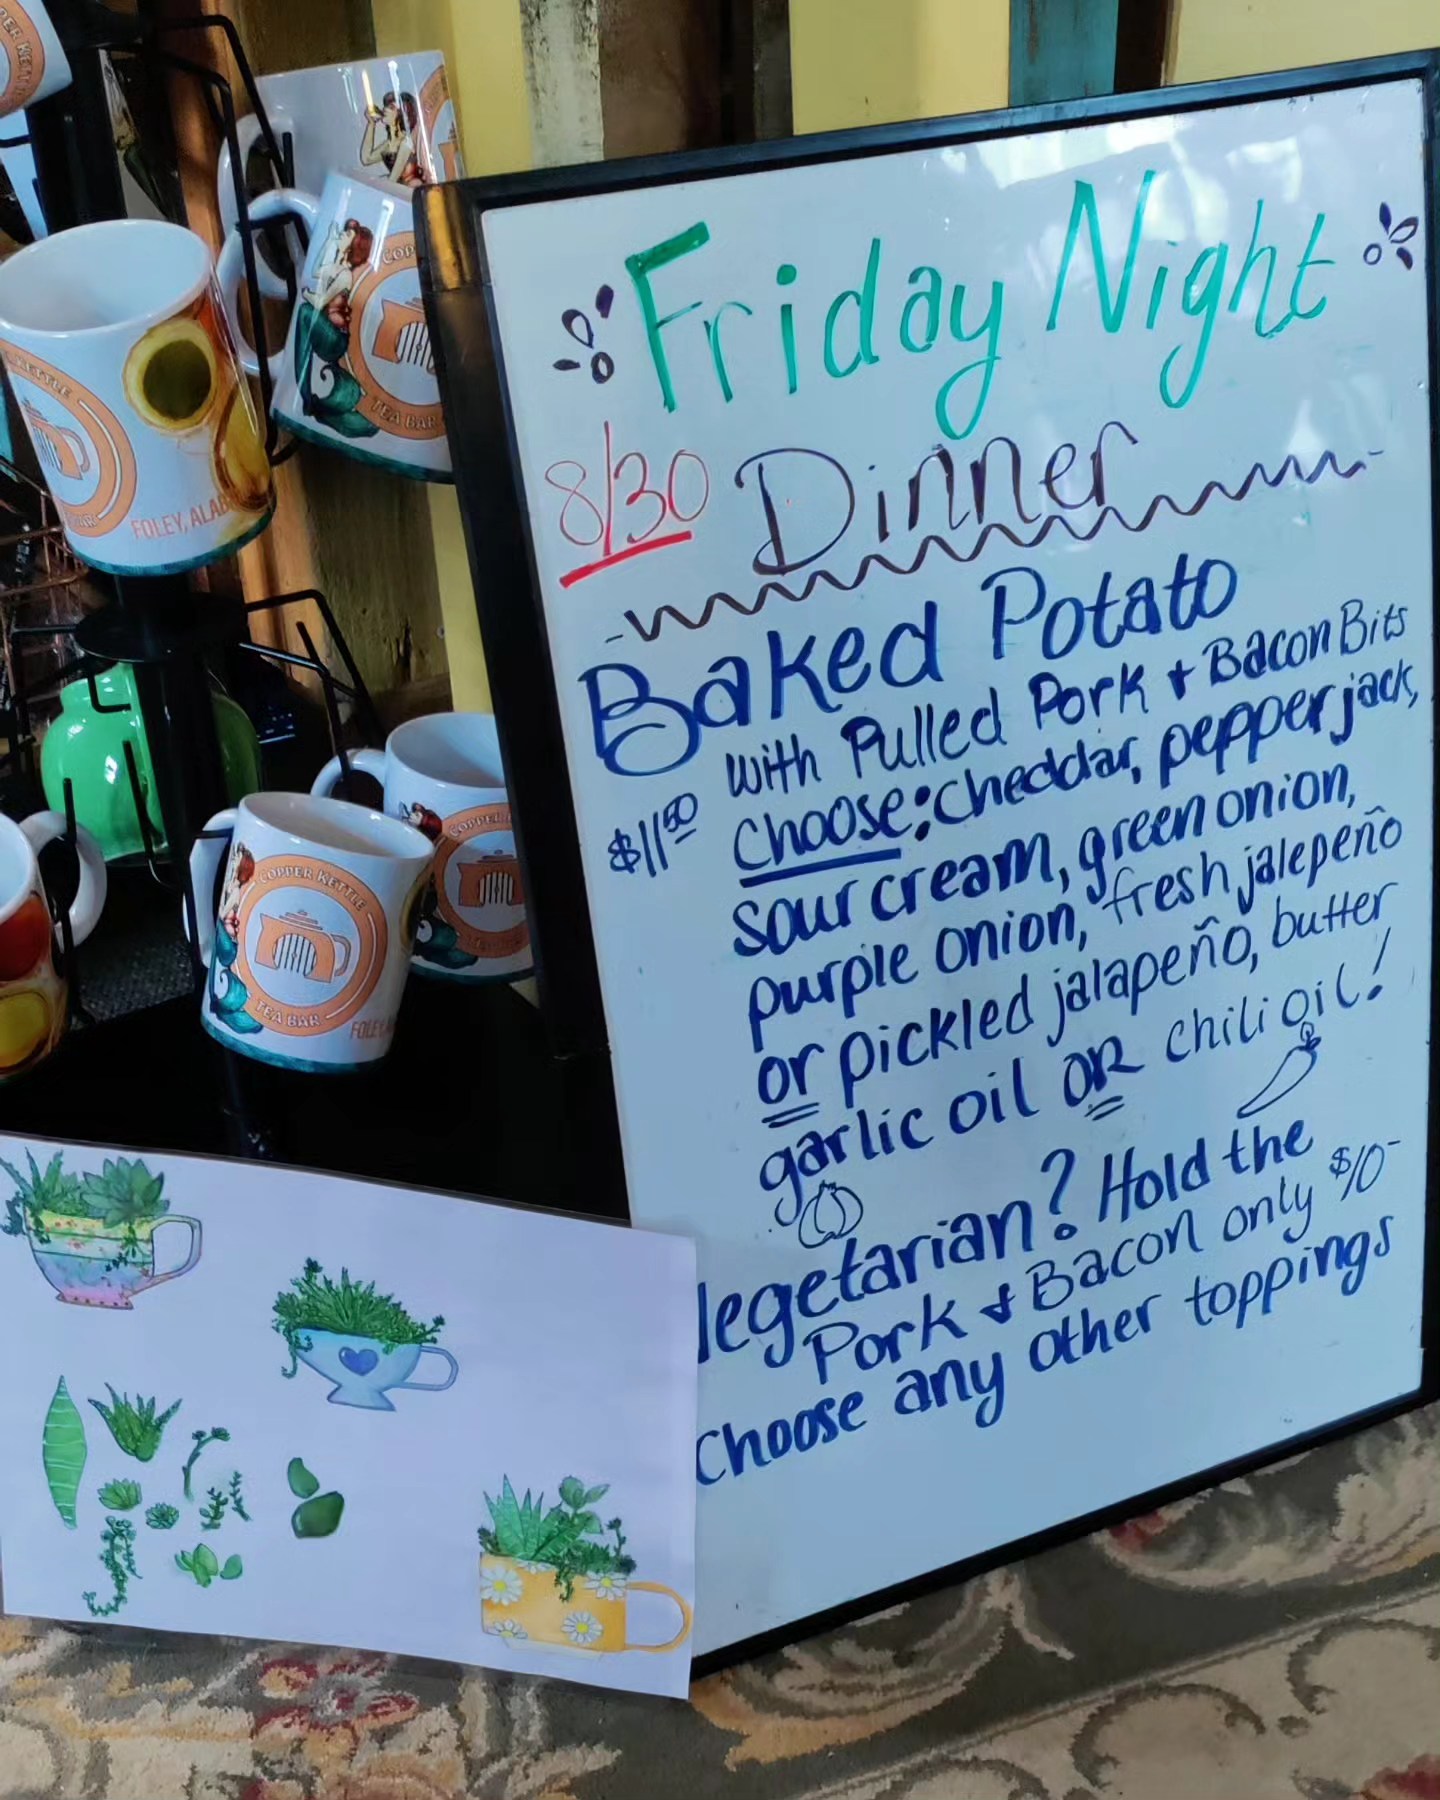 Friday Night
8/30 Dinner
Baked Potato
$11⁵⁰ with Pulled Pork + Bacon Bits
Choose: Cheddar, pepper jack,
sour cream, green onion,
purple onion, fresh jalepeño
or pickled jalapeño, butter
garlic oil OR chili oil!
Vegetarian? Hold the
Pork & Bacon only $10-
Choose any other toppings
KETTLE
FOLEY, ALAB
COP
TEA BAR
COPPER KETTLE
TEA BAR
FOLEY, A
COPPER